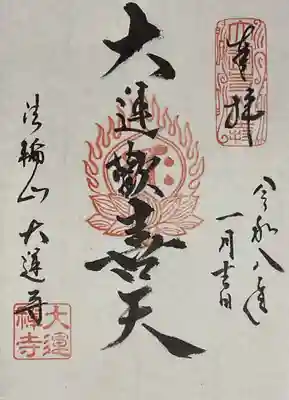 奉拝
令和八年
一月吉日
大運歓喜天
法輪山 大運寺
大運
禅寺